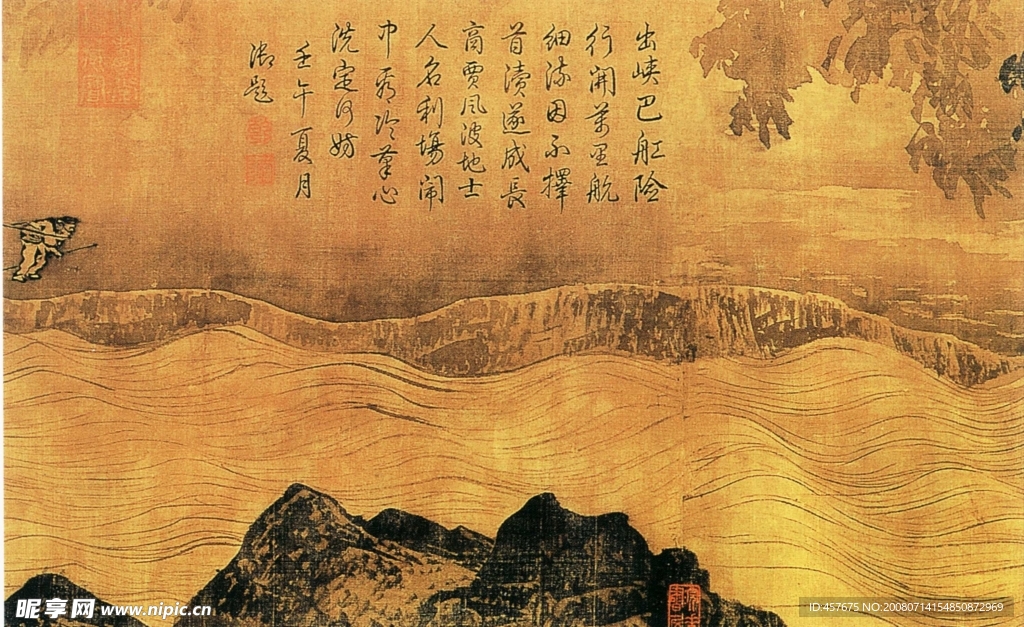 出峽巴舡險
行開萬里航
細流因不擇
首瀆遂成長
商賈風波地士
人名利場鬧
中看冷筆心
洗定何妨
壬午夏月
御題
昵享网 www.nipic.cn
ID:457675 NO:20080714154850872969